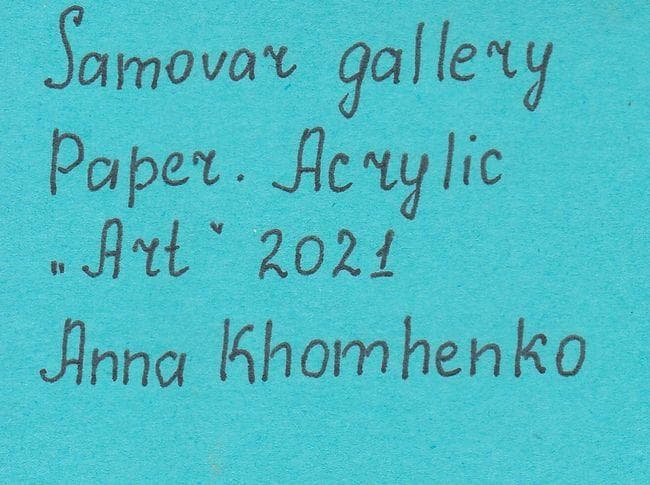 Samovar gallery
Paper. Acrylic
„Art“ 2021
Anna Khomhenko